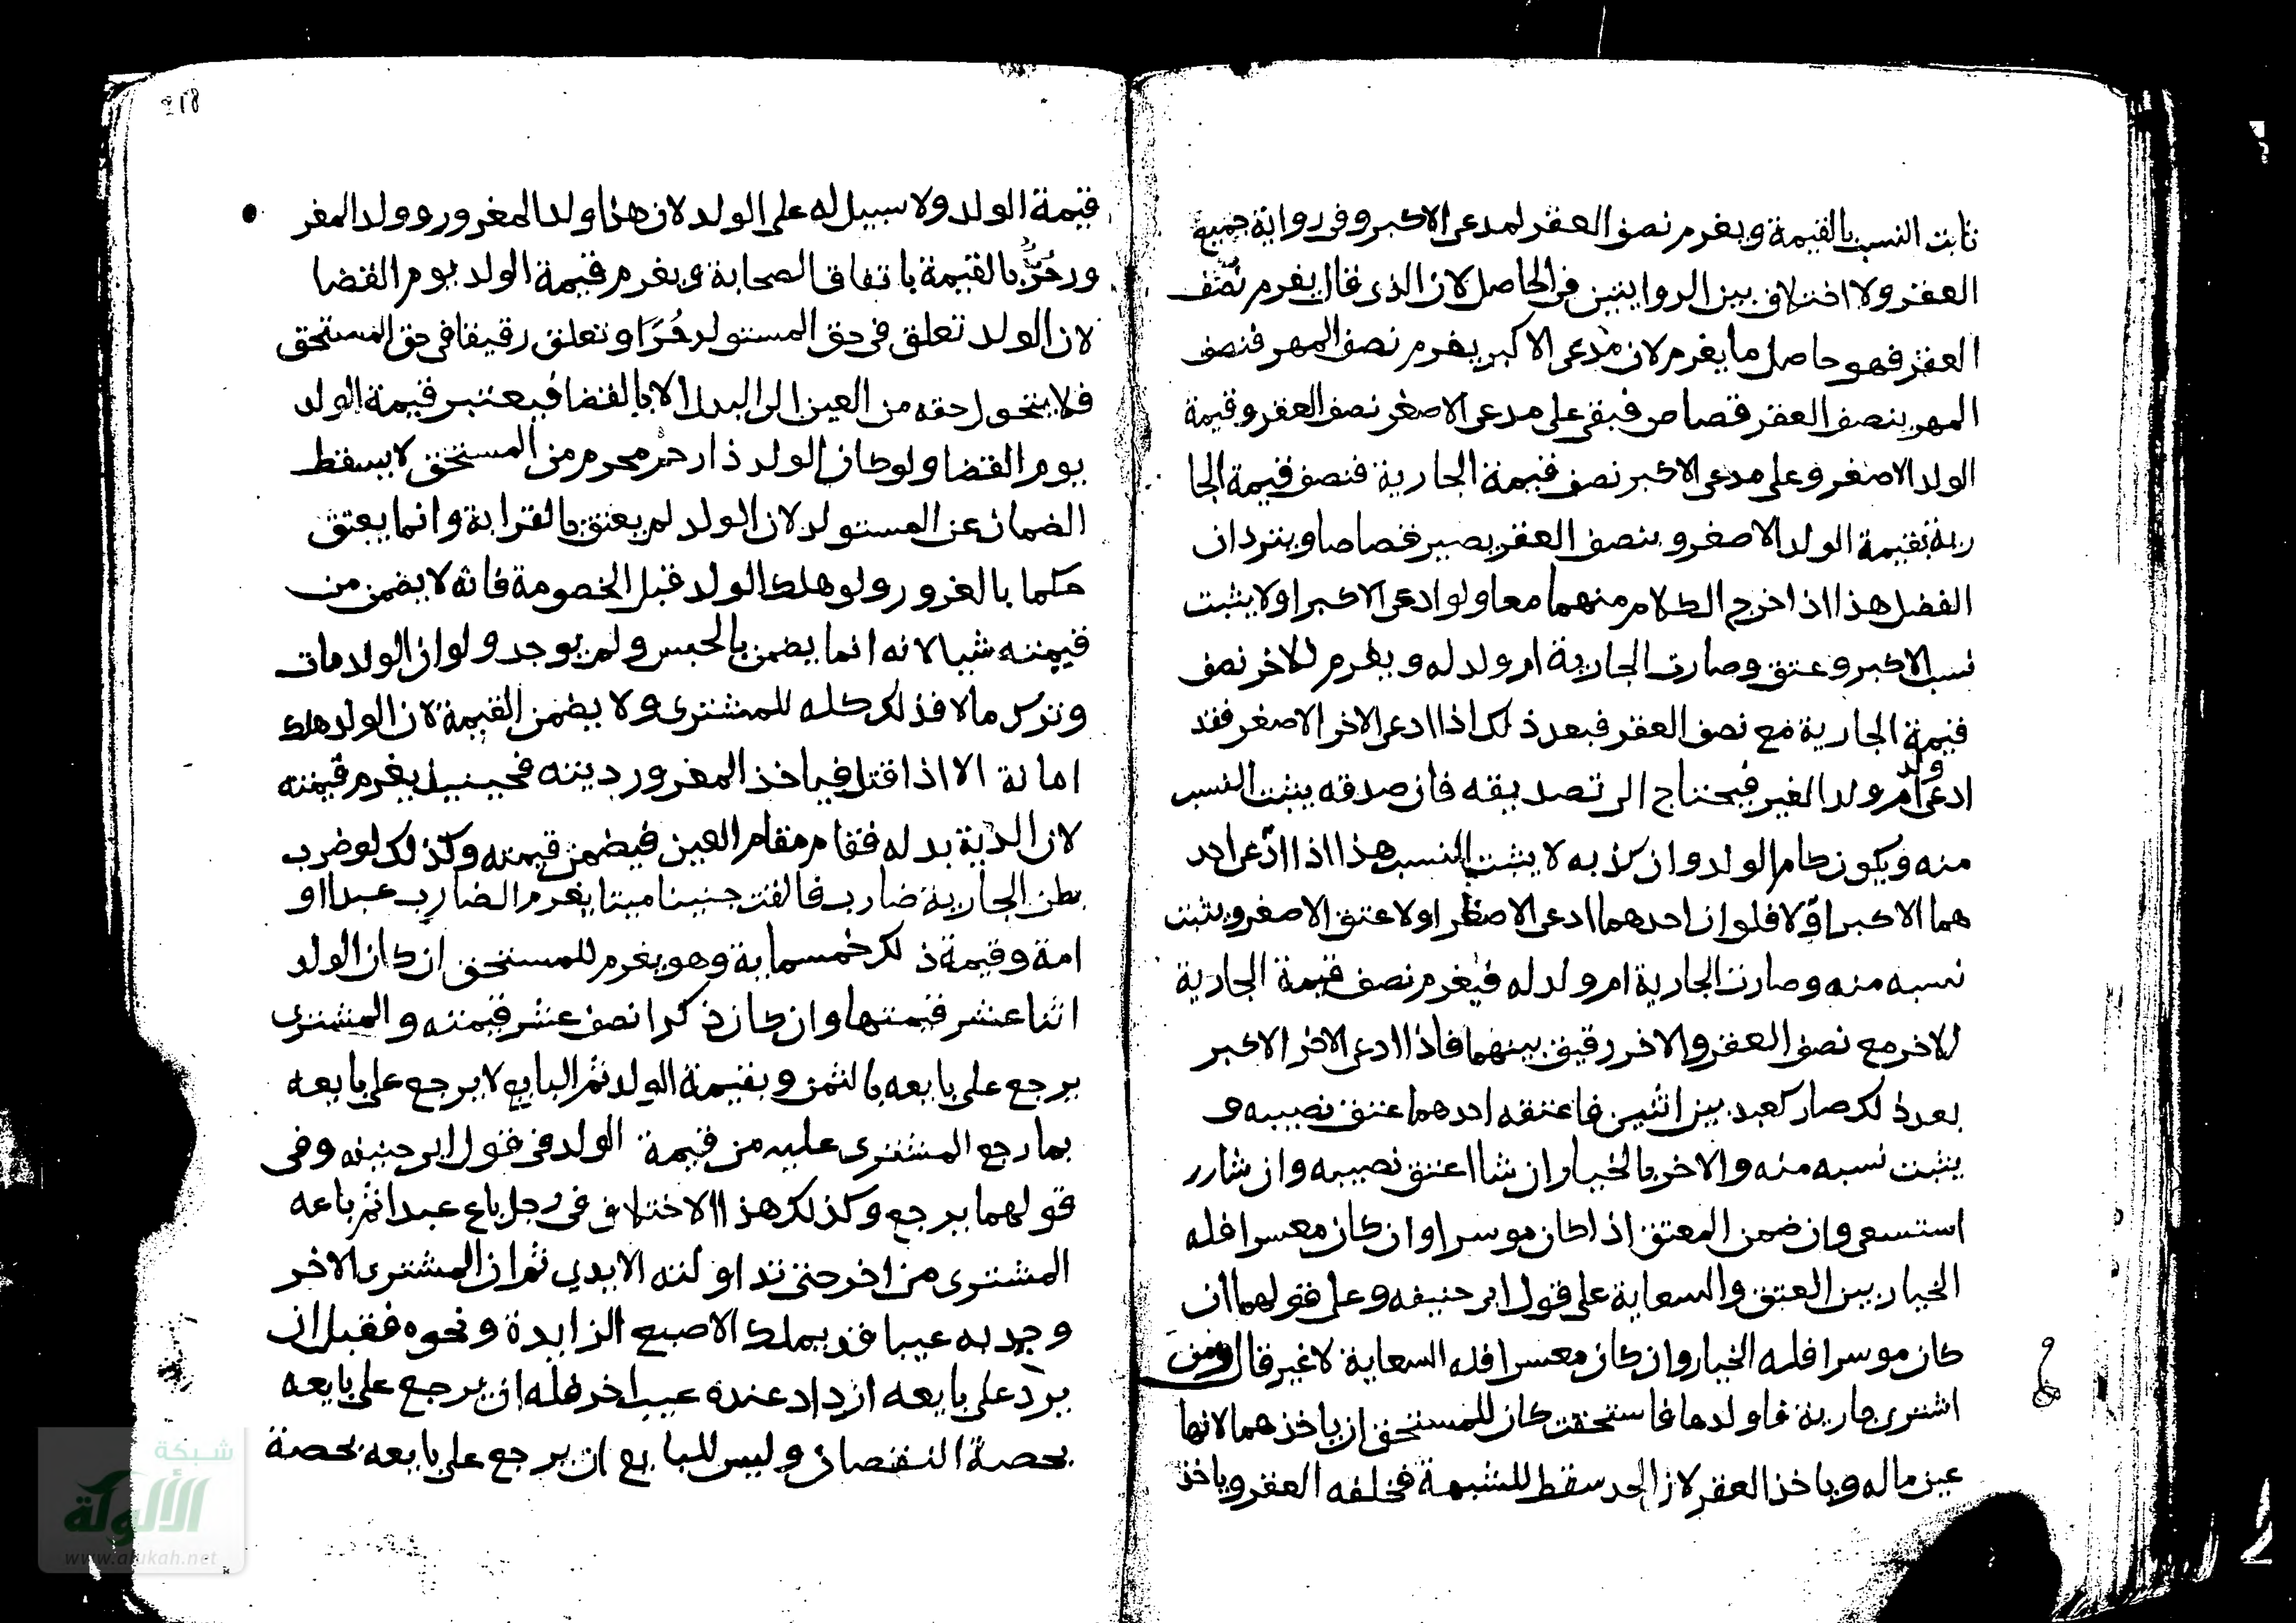 ثابت النسب بالقيمة ويغرم نصف العقر لمدعى الاكبر وفى رواية جميع
العقر ولا اختلاف بين الروايتين فى الحاصل لان الذى قال يغرم نصف
العقر فهو حاصل ما يغرم لان مدعى الاكبر يغرم نصف المهر فنصف
المهر بنصف العقر قصاص فبقى على مدعى الاصغر نصف العقر وقيمة
الولد الاصغر وعلى مدعى الاكبر نصف قيمة الجارية فنصف قيمة الجا
رية بقيمة الولد الاصغر وبنصف العقر يصير قصاصا ويترادان
الفضل هذا اذا خرج الكلام منهما معا ولو ادعى الاكبر اولا يثبت
نسب الاكبر وعتق وصارت الجارية ام ولد له ويغرم للاخر نصف
قيمة الجارية مع نصف العقر فبعد ذلك اذا ادعى الاخر الاصغر فقد
ادعى ولد ام ولد الغير فيحتاج الى تصديقه فان صدقه يثبت النسب
منه ويكون كام الولد وان كذبه لا يثبت النسب هذا اذا ادعى احد
هما الاكبر اولا فلو ان احدهما ادعى الاصغر اولا عتق الاصغر ويثبت
نسبه منه وصارت الجارية ام ولد له فيغرم نصف قيمة الجارية
للاخر مع نصف العقر والاخر رقيق بينهما فاذا ادعى الاخر الاكبر
بعد ذلك صار كعبد بين اثنين فاعتقه احدهما عتق نصيبه و
يثبت نسبه منه والاخر بالخيار ان شا اعتق نصيبه وان شارر
استسعى وان ضمن المعتق اذا كان موسرا وان كان معسرا فله
الخيار بين العتق والسعاية على قول ابى حنيفه وعلى قولهما ان
كان موسرا فله الخيار وان كان معسرا فله السعاية لا غير قال ومن
اشترى جارية فاولدها فاستحقت كان للمستحق ان ياخذهما لانها
عين ماله وياخذ العقر لان الحد سقط للشبهة فخلفه العقر وياخذ
٢١٨
قيمة الولد ولا سبيل له على الولد لان هذا ولد المغرور وولد المغر
ور حُرٌّ بالقيمة باتفاق الصحابة ويغرم قيمة الولد يوم القضا
لان الولد تعلق فى حق المستولد حُرًا وتعلق رقيقا فى حق المستحق
فلا يتحول حقه من العين الى البدل الا بالقضا فيعتبر قيمة الولد
يوم القضا ولو كان الولد ذا رحم محرم من المستحق لا يسقط
الضمان عن المستولد لان الولد لم يعتق بالقرابة وانما يعتق
حكما بالغرور ولو هلك الولد قبل الخصومة فانه لا يضمن من
قيمته شيا لانه انما يضمن بالحبس ولم يوجد ولو ان الولد مات
وترك مالا فذلك كله للمشترى ولا يضمن القيمة لان الولد هلك
امانة الا اذا قتل فياخذ المغرور ديته فحينيذ يغرم قيمته
لان الدية بدله فقام مقام العين فيضمن قيمته وكذلك لو ضرب
بطن الجارية ضارب فالقت جنينا ميتا يغرم الضارب عبدا او
امة وقيمة ذلك خمسماية وهو يغرم للمستحق ان كان الولد
انثا عشر قيمتها وان كان ذكرا نصف عشر قيمته والمشترى
يرجع على بايعه بالثمن وبقيمة الولد ثم البايع لا يرجع على بايعه
بما رجع المشترى عليه من قيمة الولد فى قول ابى حنيفه وفى
قولهما يرجع وكذلك هذا الاختلاف فى رجل باع عبدا ثم باعه
المشترى من اخر حتى تداولته الايدي ثم ان المشترى الاخر
وجد به عيبا قد يملك الاصبع الزايدة ونحوه فقبل ان
يرد على بايعه ازداد عنده عيب اخر فله ان يرجع على بايعه
بحصة النقصان وليس للبايع ان يرجع على بايعه بحصة
شبكة
الألوكة
www.alukah.net